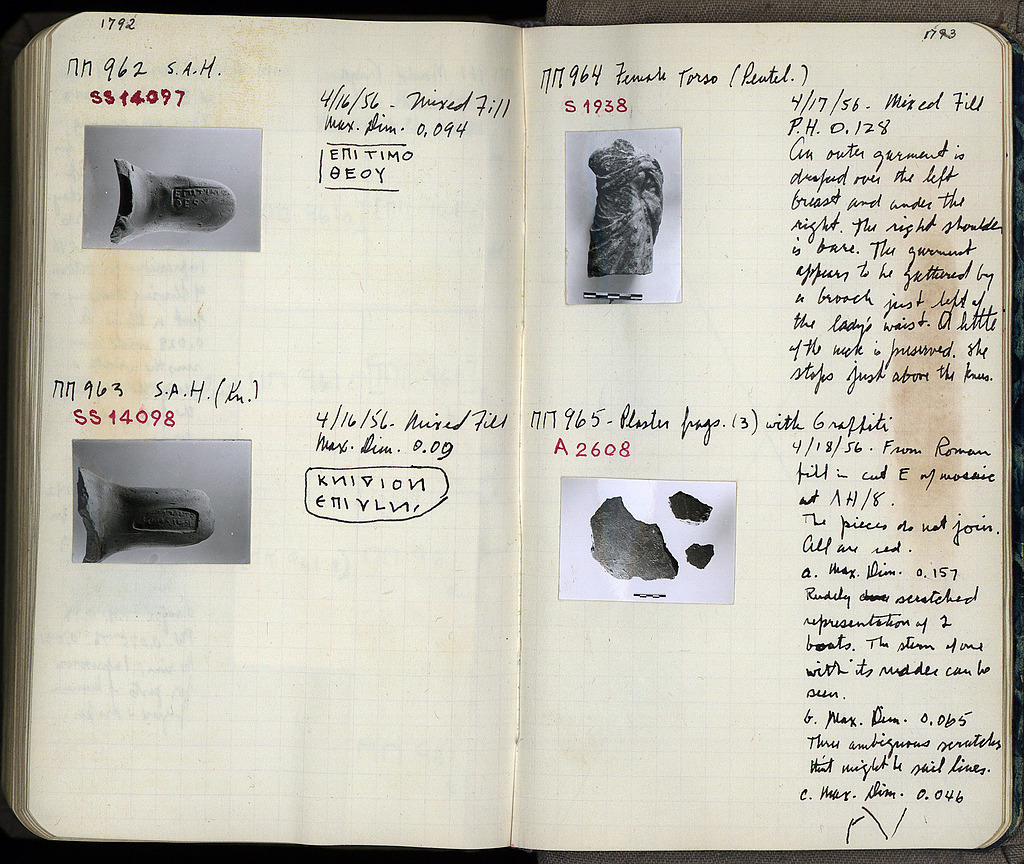 1792
ΠΠ 962 S.A.H.
SS 14097
4/16/56 - Mixed Fill
Max. Dim. 0.094
ΕΠΙΤΙΜΟ
ΘΕΟΥ
ΠΠ 963 S.A.H. (Kn.)
SS 14098
4/16/56 - Mixed Fill
Max. Dim. 0.09
ΚΝΙΔΙΟΝ
1793
ΠΠ 964 Female Torso (Pentel.)
S 1938
4/17/56 - Mixed Fill
P.H. 0.128
An outer garment is
draped over the left
breast and under the
right. The right shoulder
is bare. The garment
appears to be gathered by
a brooch just left of
the lady's waist. A little
of the neck is preserved. She
stops just above the knees.
ΠΠ 965 - Plaster frags. (3) with Graffiti
A 2608
4/18/56. From Roman
fill in cut E of mosaic
at ΛΗ/8.
The pieces do not join.
All are red.
a. Max. Dim. 0.157
Rudely scratched
representation of 2
boats. The stern of one
with its rudder can be
seen.
b. Max. Dim. 0.065
Three ambiguous scratches
that might be sail lines.
c. Max. Dim. 0.046